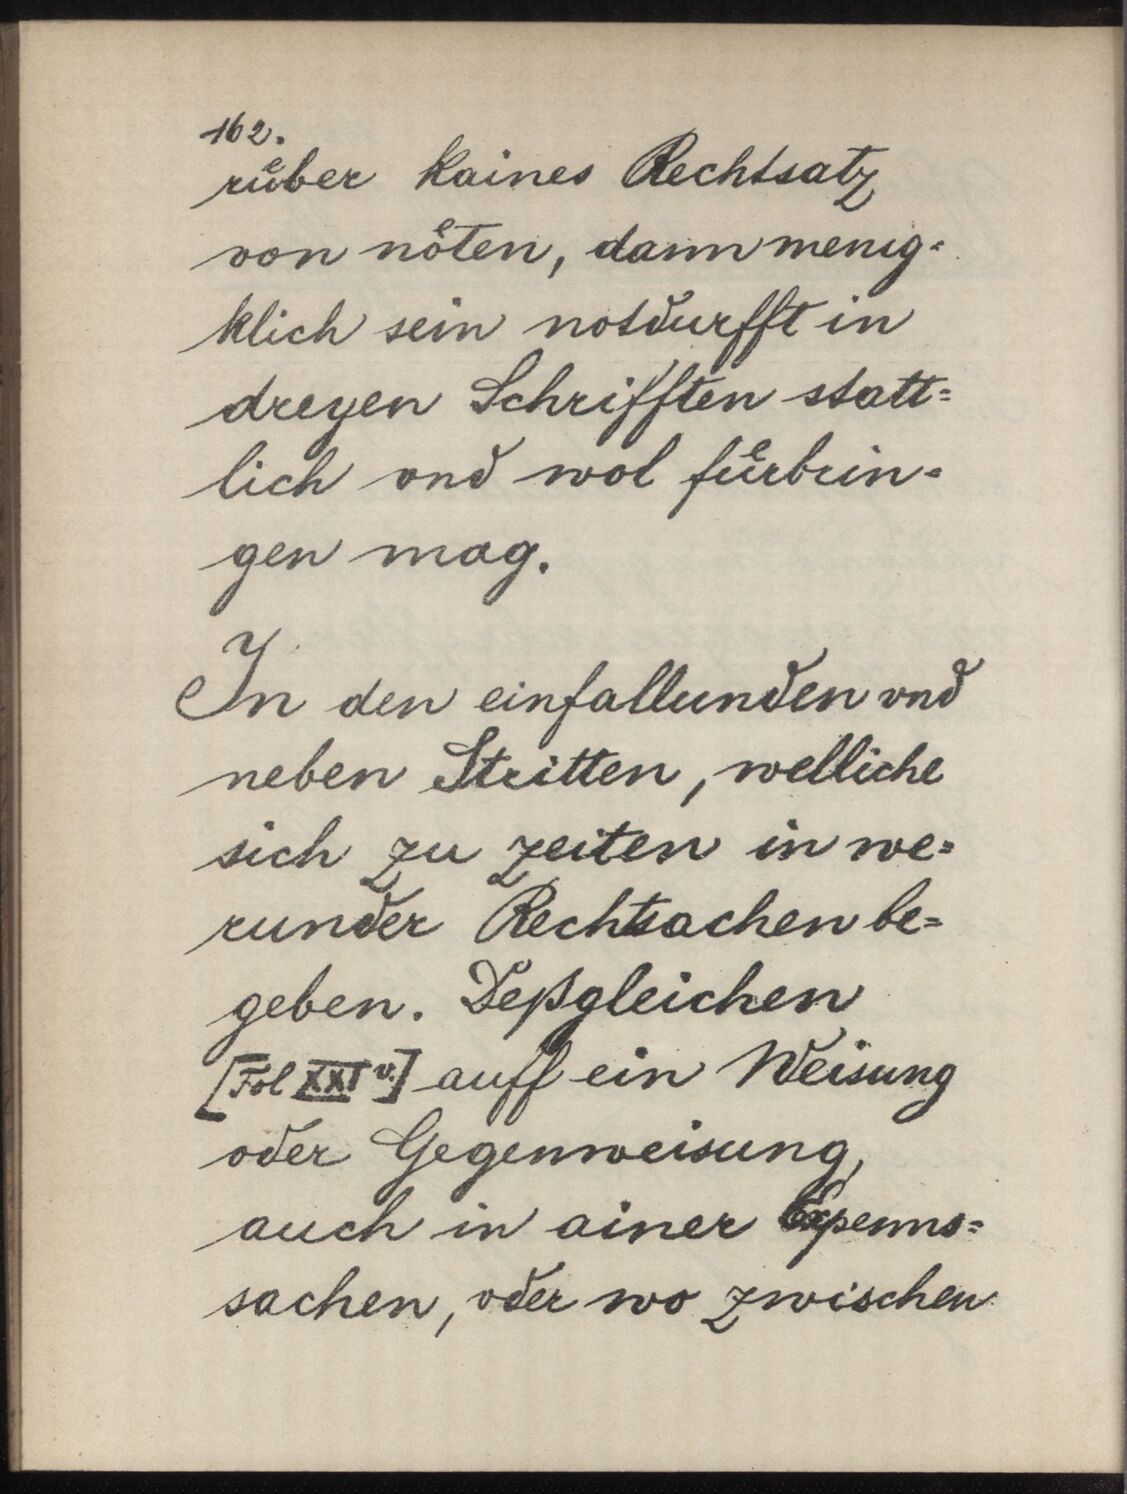 162.
ruͤber kaines Rechtsatz
von noͤten, dann menig=
klich sein notdurfft in
dreyen Schrifften statt=
lich vnd wol fuͤrbrin=
gen mag.
In den einfallunden vnd
neben Stritten, welliche
sich zu zeiten in we=
runder Rechtsachen be=
geben. Deßgleichen
[Fol XXI v.] auff ein Weisung
oder Gegenweisung,
auch in ainer Expenns=
sachen, oder wo zwischen